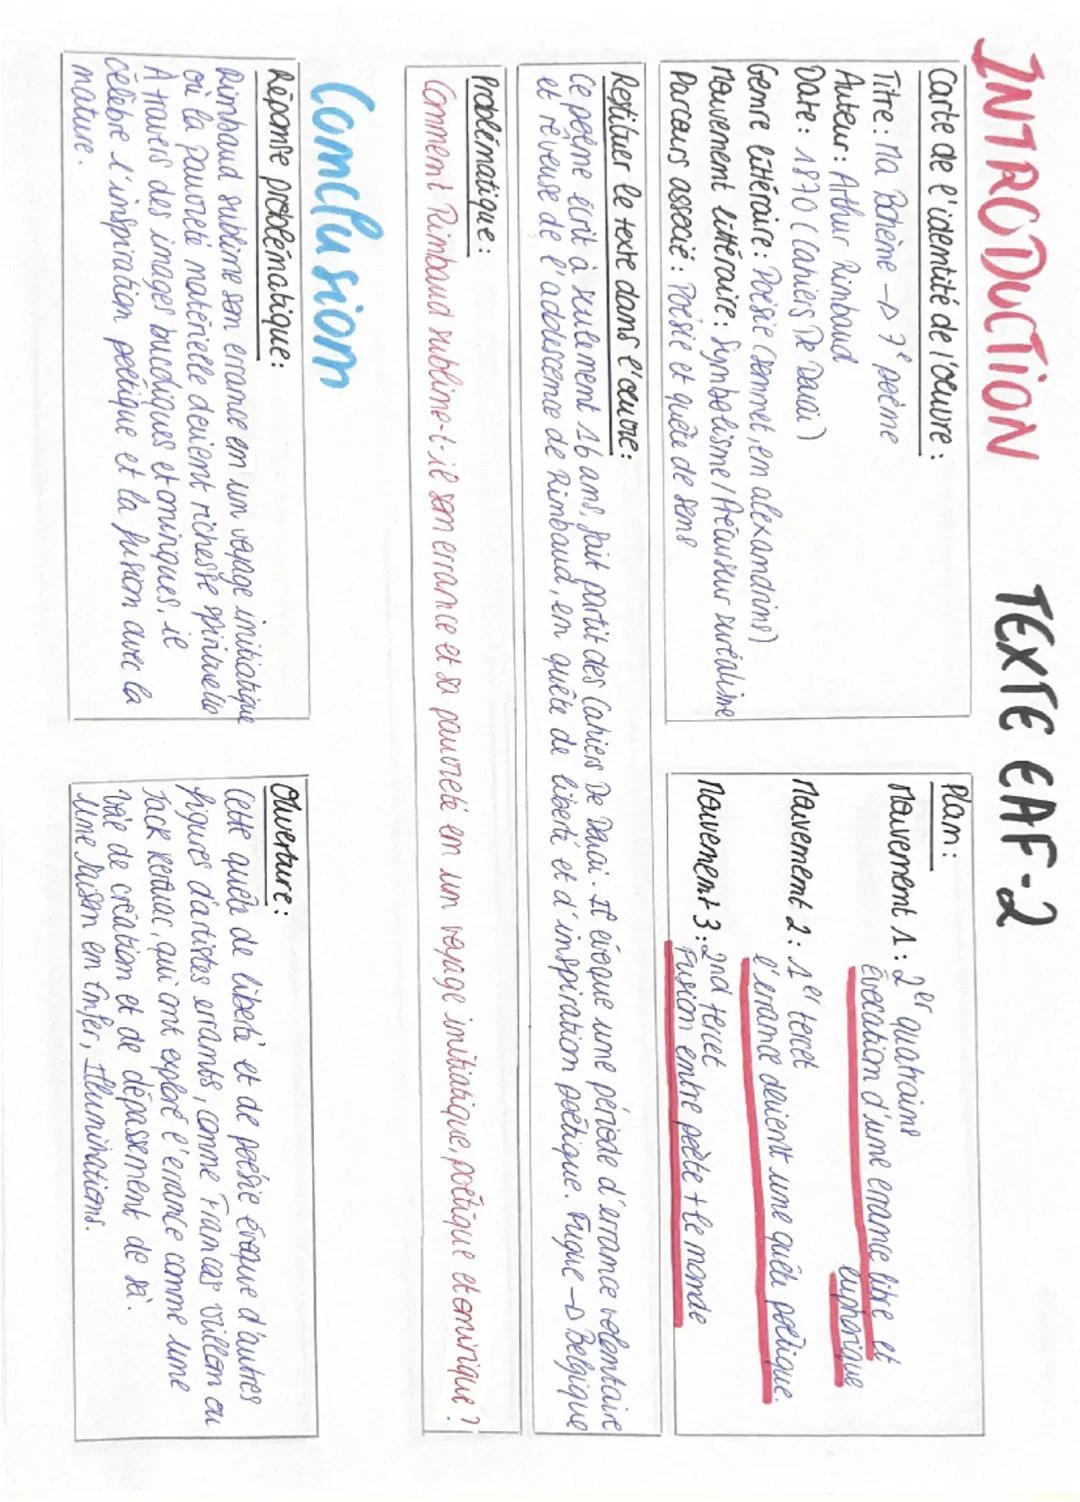 INTRODUCTION TEXTE EAF-2
Carte de l'identité de l'œuvre :
Titre : Ma Bohème → 7e poème
Auteur : Arthur Rimbaud
Date : 1870 (Cahiers De Douai)
Genre littéraire : Poésie (sonnet, en alexandrins)
Mouvement littéraire : Symbolisme / Précurseur surréalisme
Parcours associé : Poésie et quête de sens
Plan :
Mouvement 1 : 2er quatrains
Évocation d'une errance libre et
euphorique
Mouvement 2 : 1er tercet
l'errance devient une quête poétique.
Mouvement 3 : 2nd tercet
Fusion entre poète + le monde
Restituer le texte dans l'œuvre :
Ce poème écrit à seulement 16 ans, fait partit des Cahiers De Douai. Il évoque une période d'errance volontaire
et rêveuse de l'adolescence de Rimbaud, en quête de liberté et d'inspiration poétique. Fugue → Belgique
Problématique :
Comment Rimbaud sublime-t-il son errance et sa pauvreté en un voyage initiatique, poétique et onirique ?
Conclusion
Réponse problématique :
Rimbaud sublime son errance en un voyage initiatique
où la pauvreté matérielle devient richesse spirituelle
À travers des images bucoliques et oniriques, il
célèbre l'inspiration poétique et la fusion avec la
nature.
Ouverture :
Cette quête de liberté et de poésie évoque d'autres
figures d'artistes errants, comme Francas Villon ou
Jack Kerouac, qui ont exploré l'errance comme une
voie de création et de dépassement de soi.
Une Saison en Enfer, Illuminations.